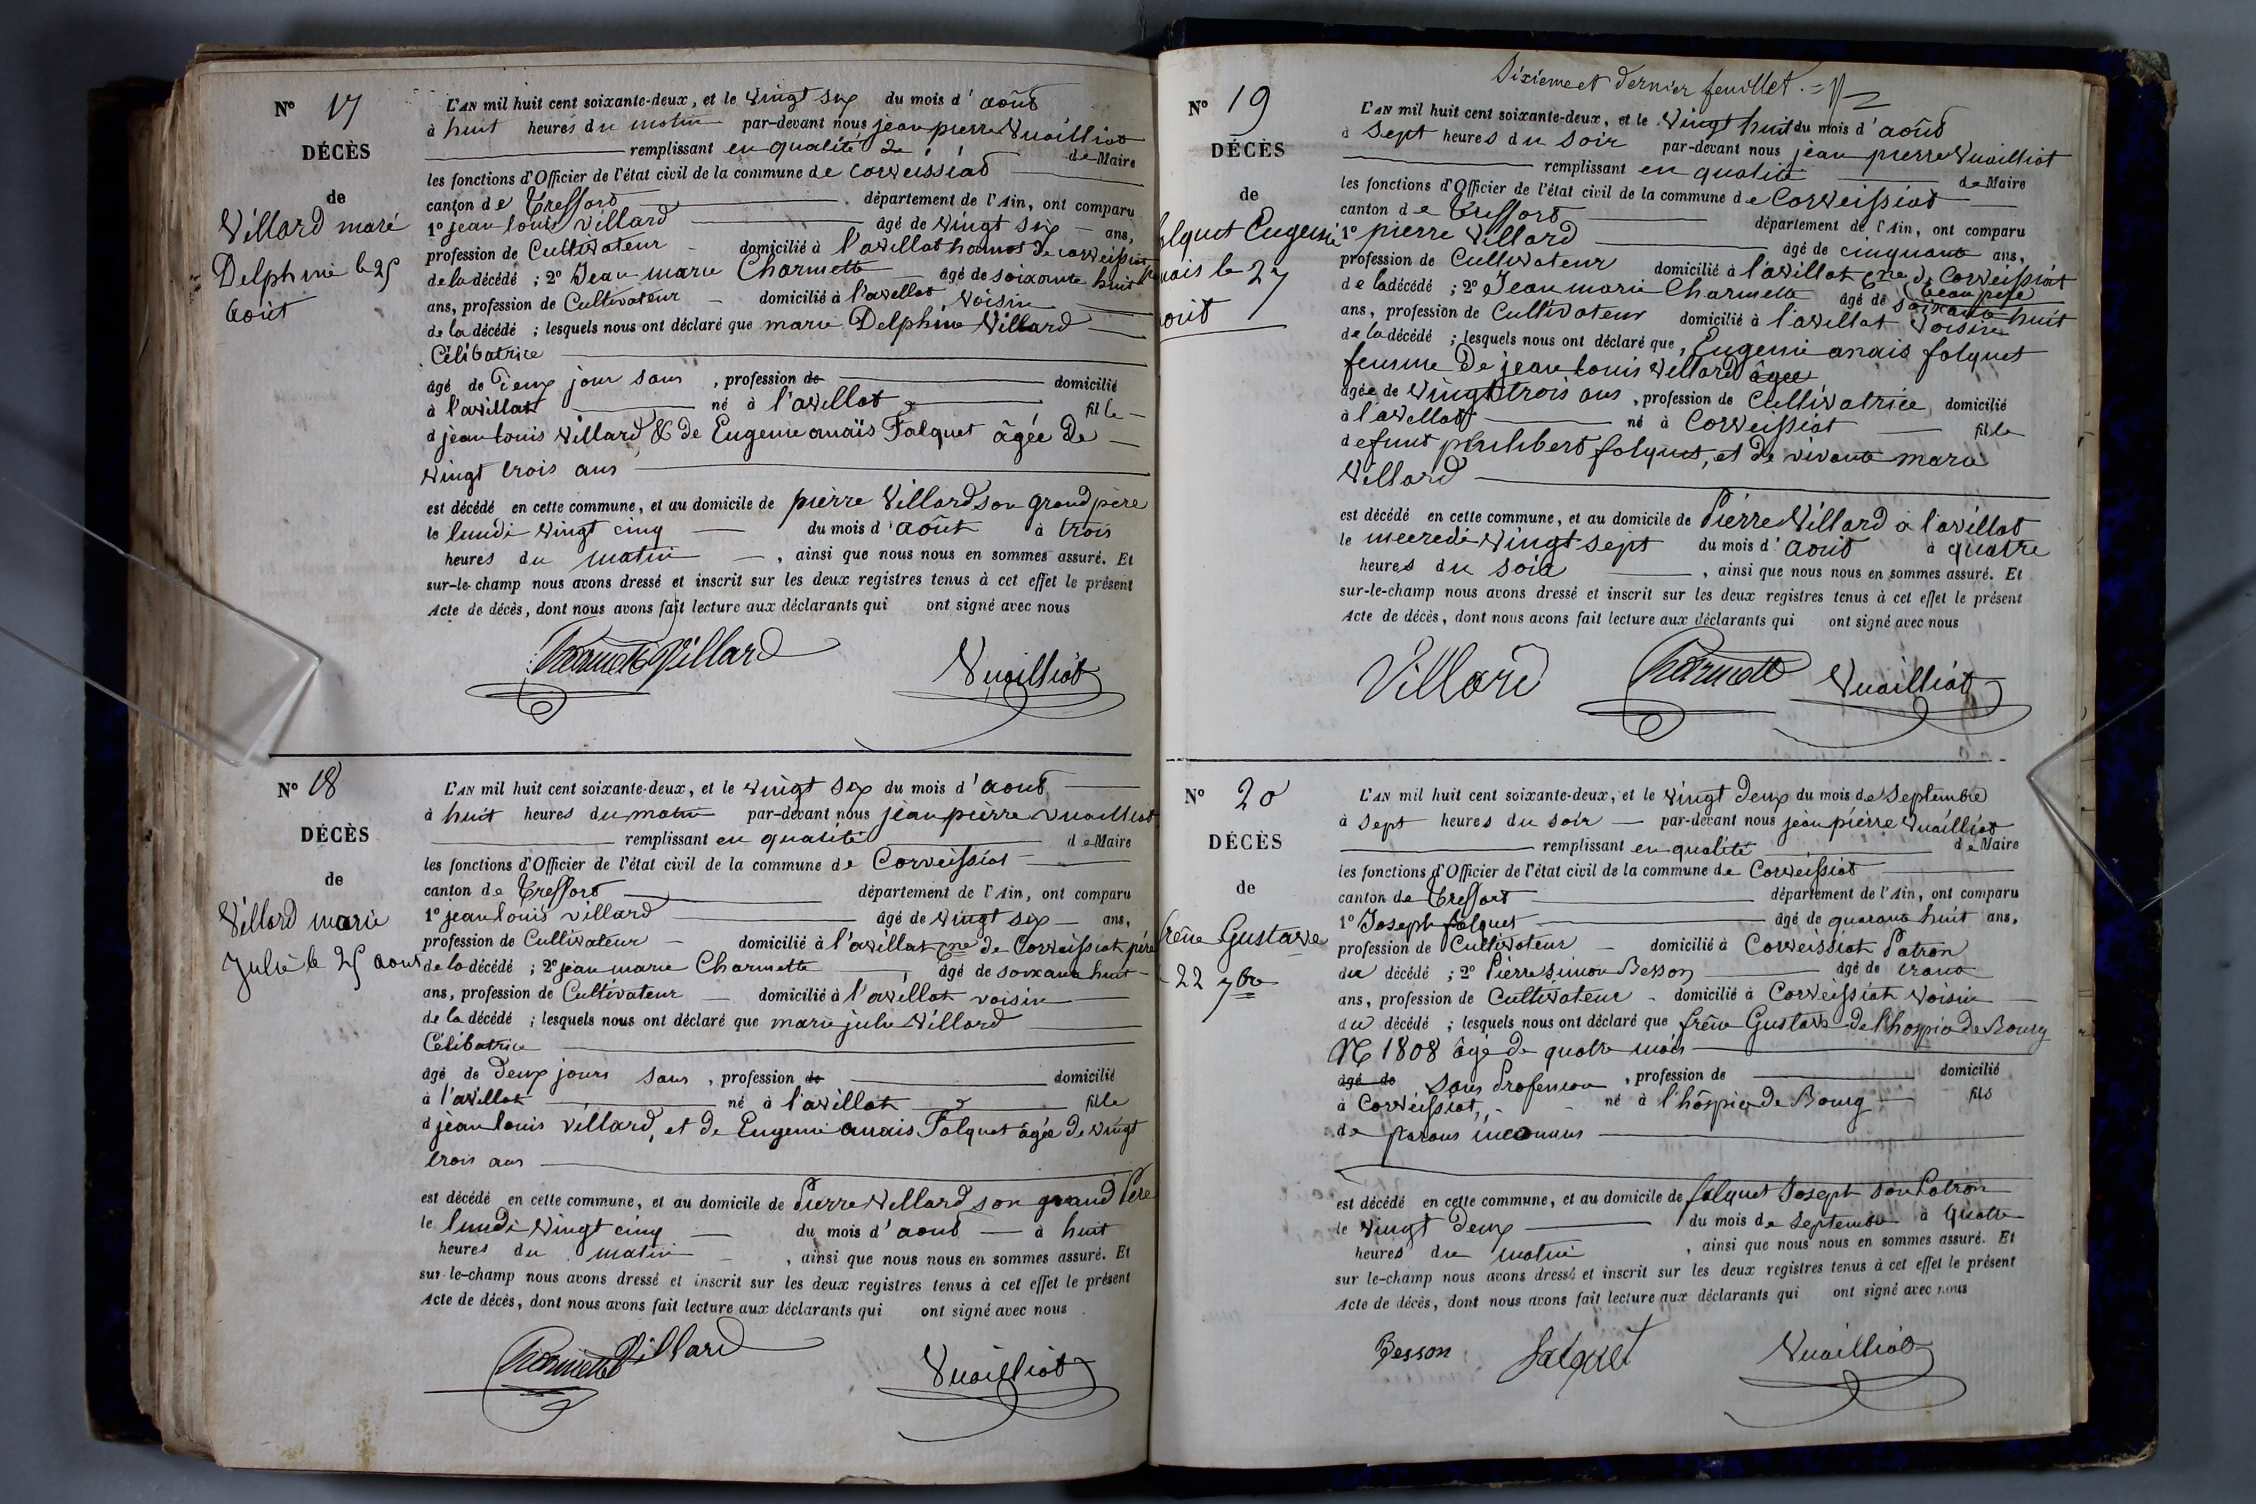 N° 17
DÉCÈS
de
Villard marie
Delphine le 25
Aout
L'AN mil huit cent soixante-deux, et le vingt six du mois d'août
à huit heures du matin par-devant nous jean pierre Vuailliat
remplissant en qualité de Maire
les fonctions d'Officier de l'état civil de la commune de Corveissiat
canton de Treffort département de l'Ain, ont comparu
1° jean louis Villard âgé de vingt six ans,
profession de Cultivateur domicilié à l'avillat hamos de corveissiat
de la décédé ; 2° Jean marie Charmette âgé de soixante huit
ans, profession de Cultivateur domicilié à l'avillat, Voisin
de la décédé ; lesquels nous ont déclaré que marie Delphine Villard
Célibatrice
âgé de Deux jour sans , profession de domicilié
à l'avillat né à l'avillat fille
d jean louis Villard & de Eugenie anaïs Falquet âgée de
vingt trois ans
est décédé en cette commune, et au domicile de pierre Villard son grand père
le lundi vingt cinq du mois d'août à trois
heures du matin , ainsi que nous nous en sommes assuré. Et
sur-le-champ nous avons dressé et inscrit sur les deux registres tenus à cet effet le présent
Acte de décès, dont nous avons fait lecture aux déclarants qui ont signé avec nous
Charmette Villard Vuailliat
N° 18
DÉCÈS
de
Villard marie
Julie le 25 aout
L'AN mil huit cent soixante-deux, et le vingt six du mois d'aout
à huit heures du matin par-devant nous jean pierre Vuailliat
remplissant en qualité de Maire
les fonctions d'Officier de l'état civil de la commune de Corveissiat
canton de Treffort département de l'Ain, ont comparu
1° jean louis Villard âgé de vingt six ans,
profession de Cultivateur domicilié à l'avillat cne de Corveissiat père
de la décédé ; 2° jean marie Charmette âgé de soixante huit
ans, profession de Cultivateur domicilié à l'avillat voisin
de la décédé ; lesquels nous ont déclaré que marie julie Villard
Célibatrice
âgé de Deux jours sans , profession de domicilié
à l'avillat né à l'avillat fille
d jean louis Villard, et de Eugenie anais Falquet âgée de vingt
trois ans
est décédé en cette commune, et au domicile de Pierre Villard son grand Père
le lundi vingt cinq du mois d'aout à huit
heures du matin , ainsi que nous nous en sommes assuré. Et
sur-le-champ nous avons dressé et inscrit sur les deux registres tenus à cet effet le présent
Acte de décès, dont nous avons fait lecture aux déclarants qui ont signé avec nous
Charmette Villard Vuailliat
Sixieme et dernier feuillet.
N° 19
DÉCÈS
de
falquet Eugenie
anais le 27
aout
L'AN mil huit cent soixante-deux, et le vingt huit du mois d'août
à sept heures du soir par-devant nous jean pierre Vuailliat
remplissant en qualité de Maire
les fonctions d'Officier de l'état civil de la commune de Corveissiat
canton de Treffort département de l'Ain, ont comparu
1° pierre Villard âgé de cinquante ans,
profession de Cultivateur domicilié à l'avillat cne de Corveissiat
beau père
de la décédé ; 2° Jean marie Charmette âgé de soixante huit
ans, profession de Cultivateur domicilié à l'avillat Voisin
de la décédé ; lesquels nous ont déclaré que, Eugenie anais falquet
femme de jean louis Villard âgée
âgée de vingt trois ans , profession de Cultivatrice domicilié
à l'avillat né à Corveissiat fille
de funt philibert falquet, et de vivante marie
Villard
est décédé en cette commune, et au domicile de Pierre Villard à l'avillat
le mecredi vingt sept du mois d'aout à quatre
heures du soir , ainsi que nous nous en sommes assuré. Et
sur-le-champ nous avons dressé et inscrit sur les deux registres tenus à cet effet le présent
Acte de décès, dont nous avons fait lecture aux déclarants qui ont signé avec nous
Villard Charmette Vuailliat
N° 20
DÉCÈS
de
frêne Gustave
22 7bre
L'AN mil huit cent soixante-deux, et le vingt deux du mois de septembre
à sept heures du soir par-devant nous jean pierre Vuailliat
remplissant en qualité de Maire
les fonctions d'Officier de l'état civil de la commune de Corveissiat
canton de Treffort département de l'Ain, ont comparu
1° Joseph falquet âgé de quarante huit ans,
profession de Cultivateur domicilié à Corveissiat Patron
du décédé ; 2° Pierre simon Besson âgé de trente
ans, profession de Cultivateur domicilié à Corveissiat Voisin
du décédé ; lesquels nous ont déclaré que frêne Gustave de l'hospice de Bourg
N° 1808 âgé de quatre mois
âgé de sans profession , profession de domicilié
à Corveissiat, né à l'hôspice de Bourg fils
de parans inconnus
est décédé en cette commune, et au domicile de falquet Joseph son Patron
le vingt deux du mois de septembre à quatre
heures du matin , ainsi que nous nous en sommes assuré. Et
sur le-champ nous avons dressé et inscrit sur les deux registres tenus à cet effet le présent
Acte de décès, dont nous avons fait lecture aux déclarants qui ont signé avec nous
Besson falquet Vuailliat